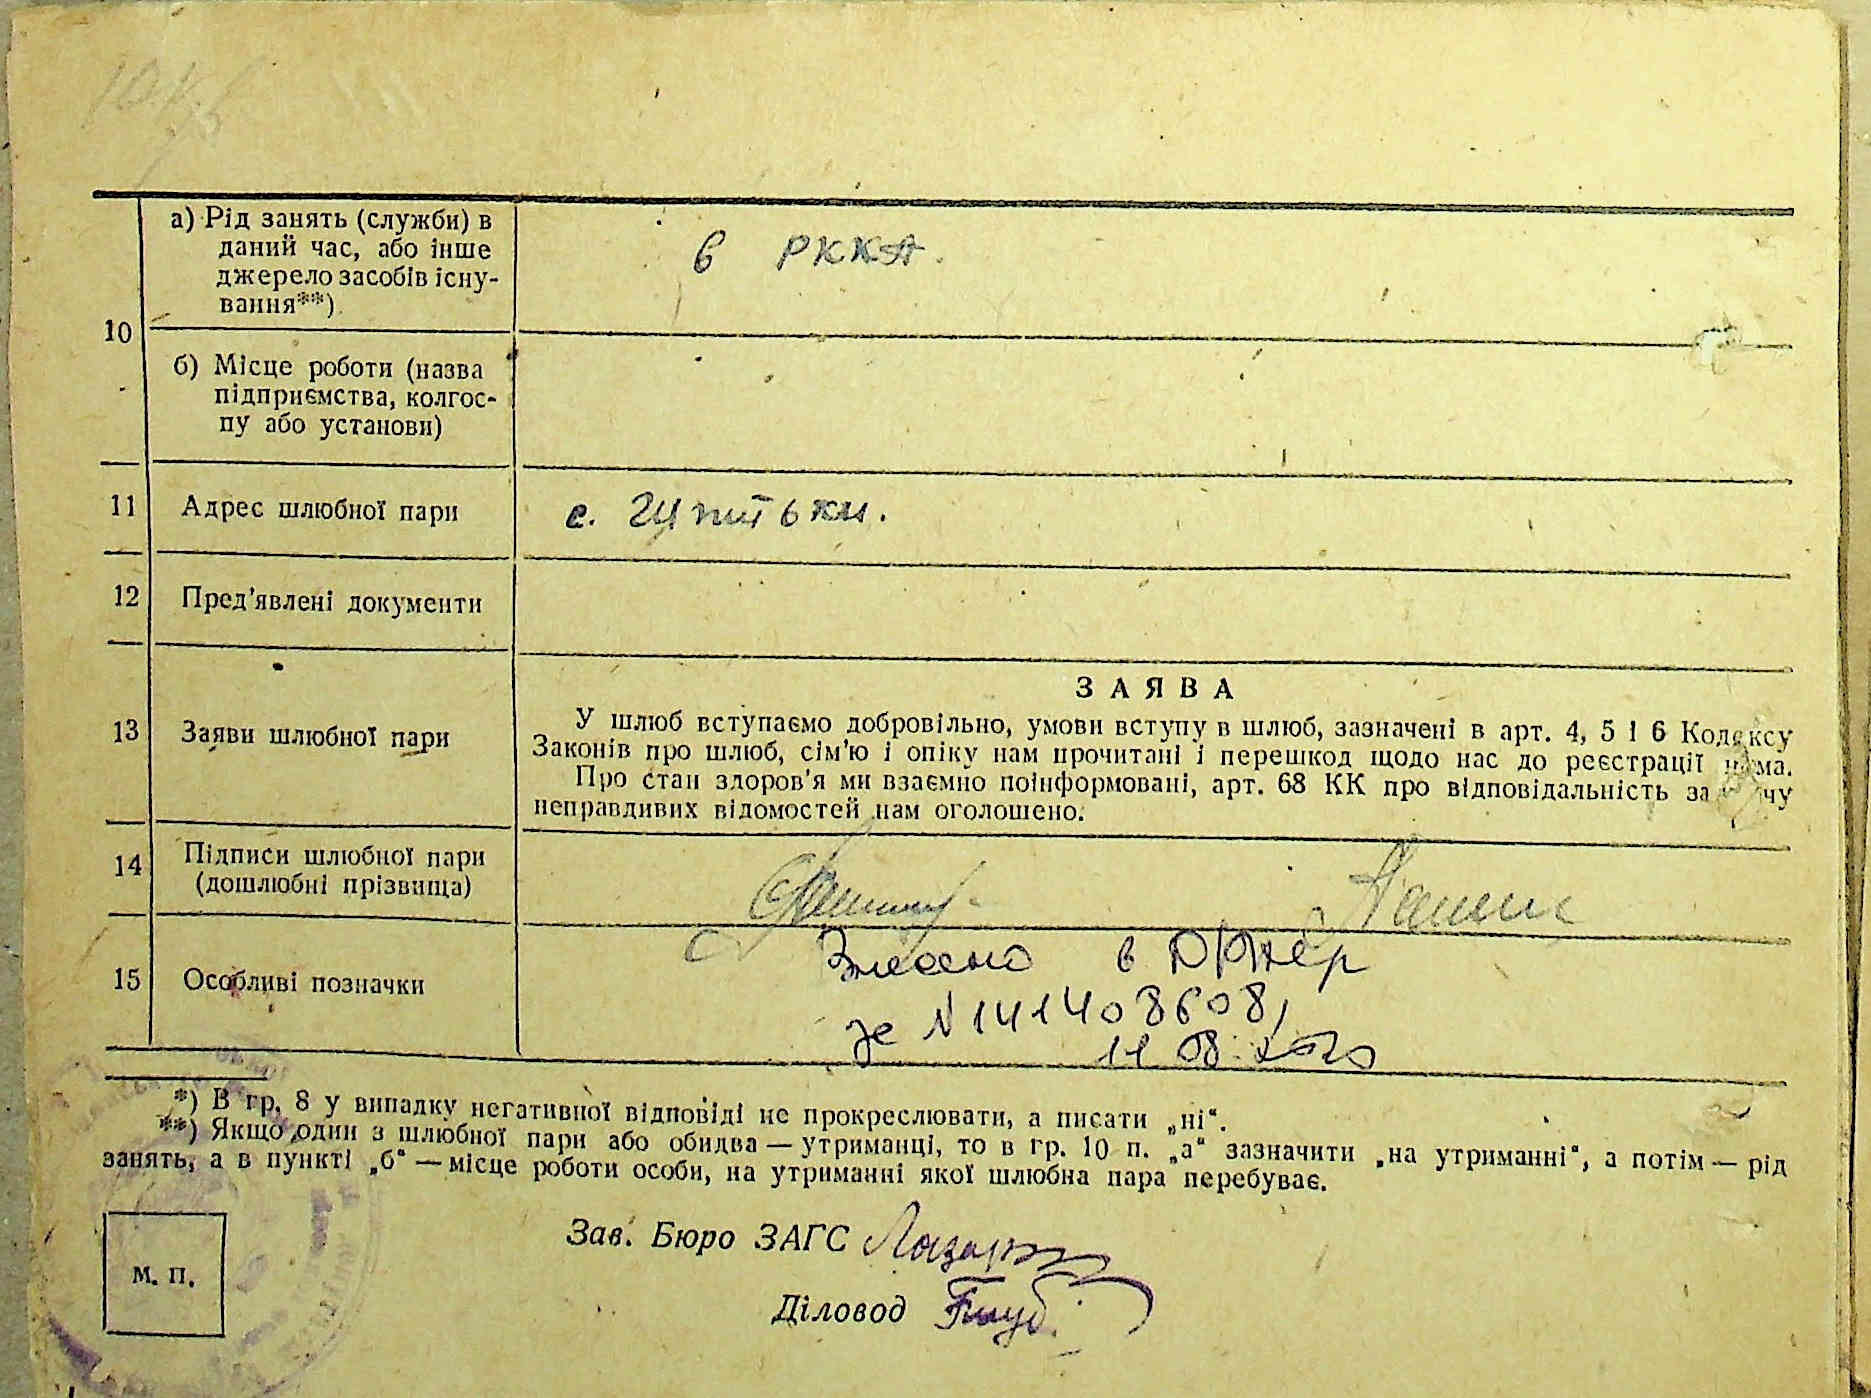 10
а) Рід занять (служби) в
даний час, або інше
джерело засобів існу-
вання**)
в РККА.
б) Місце роботи (назва
підприємства, колгос-
пу або установи)
11 Адрес шлюбної пари
с.
12 Пред'явлені документи
13 Заяви шлюбної пари
ЗАЯВА
У шлюб вступаємо добровільно, умови вступу в шлюб, зазначені в арт. 4, 5 і 6 Кодексу
Законів про шлюб, сім'ю і опіку нам прочитані і перешкод щодо нас до реєстрації нема.
Про стан здоров'я ми взаємно поінформовані, арт. 68 КК про відповідальність за
неправдивих відомостей нам оголошено.
14 Підписи шлюбної пари
(дошлюбні прізвища)
15 Особливі позначки
Внесено в
за N 141408608,
11 08 2020
*) В гр. 8 у випадку негативної відповіді не прокреслювати, а писати „ні“.
**) Якщо один з шлюбної пари або обидва — утриманці, то в гр. 10 п. „а“ зазначити „на утриманні“, а потім — рід
занять, а в пункті „б“ — місце роботи особи, на утриманні якої шлюбна пара перебуває.
Зав. Бюро ЗАГС
М. П.
Діловод